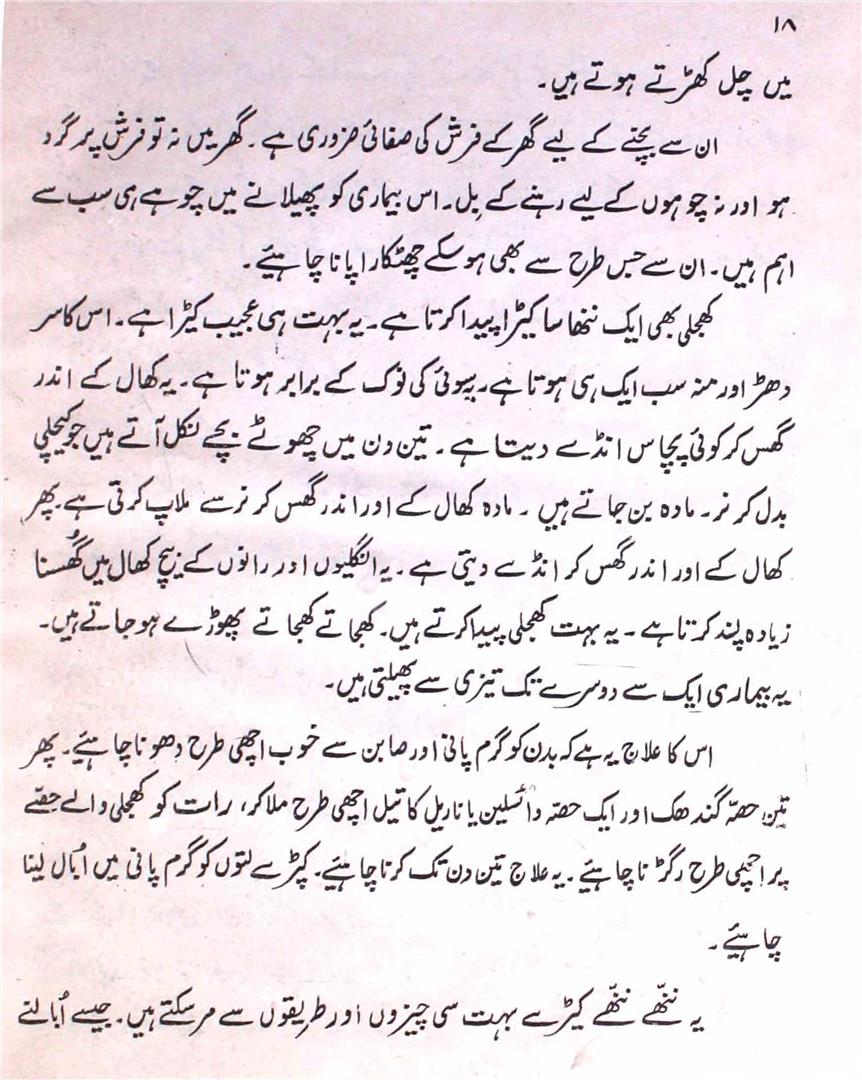 ۱۸
میں چل کھڑتے ہوتے ہیں۔
ان سے بچنے کے لیے گھر کے فرش کی صفائی ضروری ہے۔ گھر میں نہ تو فرش پر گرد
ہو اور نہ چوہوں کے لیے رہنے کے بِل۔ اس بیماری کو پھیلانے میں چوہے ہی سب سے
اہم ہیں۔ ان سے جس طرح سے بھی ہو سکے چھٹکارا پانا چاہیئے۔
کھجلی بھی ایک ننھا سا کیڑا پیدا کرتا ہے۔ یہ بہت ہی عجیب کیڑا ہے۔ اس کا سر
دھڑ اور منہ سب ایک ہی ہوتا ہے۔ یہ سوئی کی نوک کے برابر ہوتا ہے۔ یہ کھال کے اندر
گھس کر کوئی پچاس انڈے دیتا ہے۔ تین دن میں چھوٹے بچے نکل آتے ہیں جو کیچلی
بدل کر نر۔ مادہ بن جاتے ہیں۔ مادہ کھال کے اور اندر گھس کر نر سے ملاپ کرتی ہے۔ پھر
کھال کے اور اندر گھس کر انڈے دیتی ہے۔ یہ انگلیوں اور رانوں کے بیچ کھال میں گُھسنا
زیادہ پسند کرتا ہے۔ یہ بہت کھجلی پیدا کرتے ہیں۔ کھجاتے کھجاتے پھوڑے ہو جاتے ہیں۔
یہ بیماری ایک سے دوسرے تک تیزی سے پھیلتی ہیں۔
اس کا علاج یہ ہے کہ بدن کو گرم پانی اور صابن سے خوب اچھی طرح دھونا چاہیئے۔ پھر
تین حصّہ گندھک اور ایک حصہ وائسلین یا ناریل کا تیل اچھی طرح ملا کر، رات کو کھجلی والے حصّے
پر اچھی طرح رگڑنا چاہیئے۔ یہ علاج تین دن تک کرنا چاہیئے۔ کپڑے لتوں کو گرم پانی میں اُبال لینا
چاہیئے۔
یہ ننّھے ننّھے کیڑے بہت سی چیزوں اور طریقوں سے مر سکتے ہیں۔ جیسے اُبالنے